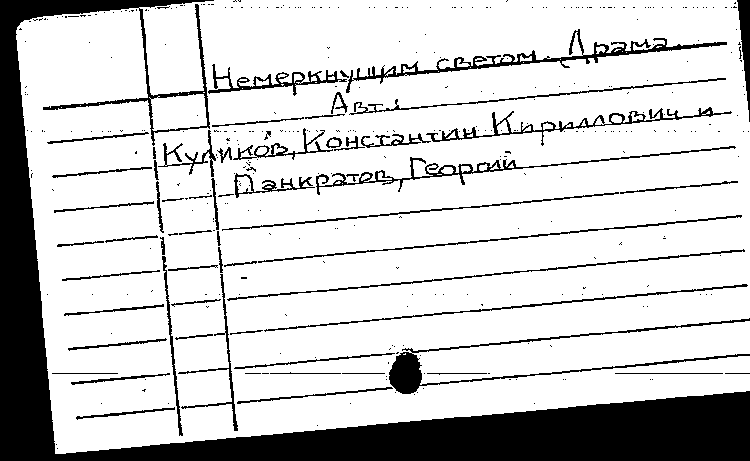 Немеркнущим светом. Драма.
Авт.:
Куликов, Константин Кириллович и
Панкратов, Георгий